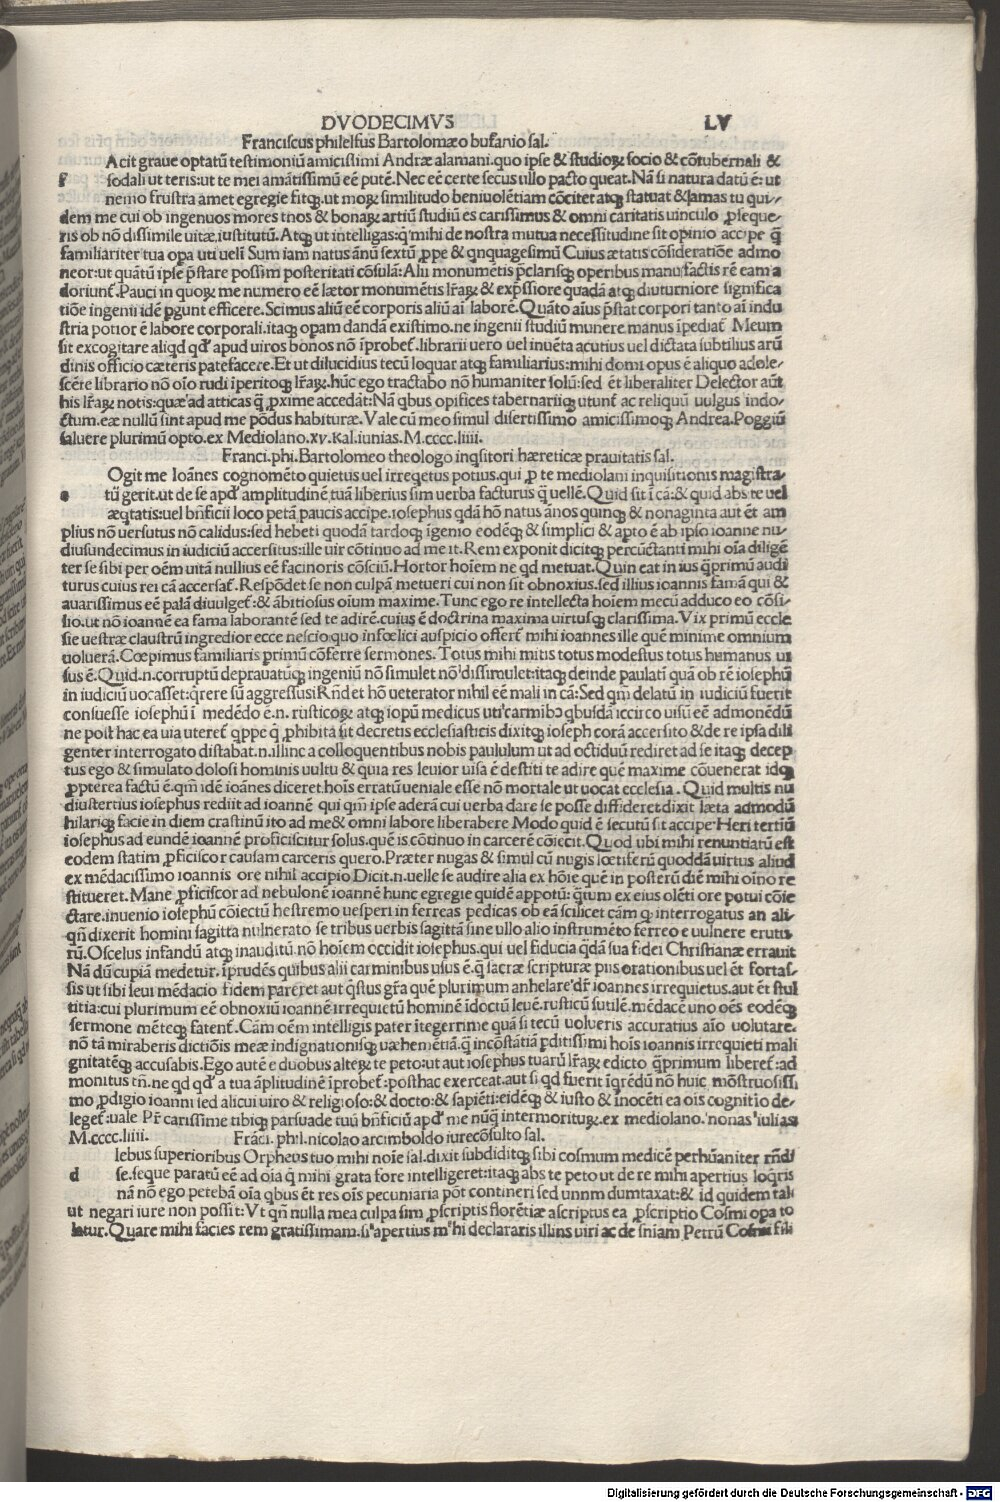 DVODECIMVS LV
Franciscus philelfus Bartolomæo bufanio sal.
Acit graue optatū testimoniū amicissimi Andræ alamani.quo ipse & studioꝝ socio & cōtubernali &
f sodali ut teris:ut te mei amātissimū eē putē.Nec eē certe secus ullo pacto queat.Nā si natura datū ē:ut
nemo frustra amet egregie fitqꝫ.ut moꝝ similitudo beniuolētiam cōcitet atqꝫ statuat &famas tu qui-
dem me cui ob ingenuos mores tuos & bonaꝝ artiū studiū es carissimus & omni caritatis uinculo ꝓseque
ris ob nō dissimile uitæ iustitutū.Atqꝫ ut intelligas:q̄ mihi de nostra mutua necessitudine sit opinio accipe q̄
familiariter tua opa uti ueli Sum iam natus ānū sextū ꝓpe & qnquagesimū Cuius ætatis cōsideratiōe admo
neor:ut quātū ipse p̄stare possim posteritati cōsulā:Alii monumētis p̄clarisqꝫ operibus manufactis rē eam a
doriunt̄.Pauci in quoꝝ me numero eē lætor monumētis lr̄aꝝ & exp̄ssiore quadā atqꝫ diuturniore significa
tiōe ingenii idē ꝑgunt efficere.Scimus aliū eē corporis aliū ai laborē.Quāto aius p̄stat corpori tanto ai indu
stria potior ē labore corporali.itaqꝫ opam dandā existimo.ne ingenii studiū munere manus īpediat̄ Meum
sit excogitare aliqd qd̄ apud uiros bonos nō īprobet̄.librarii uero uel inuēta acutius uel dictata subtilius arū
dinis officio cæteris patefacere.Et ut dilucidius tecū loquar atqꝫ familiarius:mihi domi opus ē aliquo adole-
scēte librario nō oio rudi īperitoqꝫ lr̄aꝝ.hūc ego tractabo nō humaniter solū:sed ēt liberaliter Delector aūt
his lr̄aꝝ notis:quæ ad atticas q̄ ꝓxime accedāt:Nā qbus opifices tabernariiqꝫ utunt̄ ac reliquū uulgus indo-
ctum.eæ nullū sint apud me pōdus habituræ.Vale cū meo simul disertissimo amicissimoqꝫ Andrea.Poggiū
saluere plurimū opto.ex Mediolano.xv.Kal.iunias.M.cccc.liiii.
Franci.phi.Bartolomeo theologo inqsitori hæreticæ prauitatis sal.
Ogit me Ioānes cognomēto quietus uel irreqetus potius.qui ꝓ te mediolani inquisitionis magistra-
c tū gerit.ut de se apd̄ amplitudinē tuā liberius sim uerba facturus q̄ uellē.Quid sit ī cā:& quid abs te uel
æqtatis:uel bn̄ficii loco petā paucis accipe.iosephus qdā hō natus ānos quinqꝫ & nonaginta aut ēt am
plius nō uersutus nō calidus:sed hebeti quodā tardoqꝫ īgenio eodēqꝫ & simplici & apto ē ab ipso ioanne nu
diusundecimus in iudiciū accersitus:ille uir cōtinuo ad me it.Rem exponit dicitqꝫ percūctanti mihi oia diligē
ter se sibi per oēm uitā nullius eē facinoris cōsciū.Hortor hoiem ne qd metuat.Quin eat in ius q̄primū audi
turus cuius rei cā accersat̄.Respōdet se non culpā metueri cui non sit obnoxius.sed illius ioannis famā qui &
auarissimus eē palā diuulget̄:& ābitiosus oium maxime.Tunc ego re intellecta hoiem mecū adduco eo cōsi-
lio.ut nō ioannē ea fama laborantē sed te adirē.cuius ē doctrina maxima uirtusqꝫ clarissima.Vix primū eccle
sie uestræ claustrū ingredior ecce nescio quo infœlici auspicio offert̄ mihi ioannes ille quē minime omnium
uoluerā.Cœpimus familiaris primū cōferre sermones. Totus mihi mitis totus modestus totus humanus ui
sus ē.Quid.n.corruptū deprauatūqꝫ ingeniū nō simulet nō dissimulet:itaqꝫ deinde paulati quā ob rē iosephū
in iudiciū uocasset:qrere sū aggressusiRn̄det hō ueterator nihil eē mali in cā:Sed qm̄ delatū in iudiciū fuerit
consuesse iosephū ī medēdo e.n. rusticoꝝ atqꝫ iopū medicus uti carmibꝫ qbusdā iccirco uisū eē admonēdū
ne post hac ea uia uteret̄ qppe q̄ ꝓhibita sit decretis ecclesiasticis dixitqꝫ ioseph corā accersito & de re ipsa dili
genter interrogato distabat.n.illinc a colloquentibus nobis paululum ut ad octiduū rediret ad se itaqꝫ decep
tus ego & simulato dolosi hominis uultu & quia res leuior uisa ē destiti te adire quē maxime cōuenerat idqꝫ
ꝓpterea factū ē.qm̄ idē ioānes diceret.hois erratū ueniale esse nō mortale ut uocat ecclesia.Quid multis nu
diustertius iosephus rediit ad ioannē qui qm̄ ipse aderā cui uerba dare se posse diffideret.dixit læta admodū
hilariqꝫ facie in diem crastinū ito ad me & omni labore liberabere Modo quid ē secutū sit accipe.Heri tertiū
iosephus ad eundē ioannē proficiscitur solus.quē is cōtinuo in carcerē cōiecit.Quod ubi mihi renuntiatū est
eodem statim ꝓficiscor causam carceris quero.Præter nugas & simul cū nugis lœtiferū quoddā uirtus aliud
ex mēdacissimo ioannis ore nihil accipio Dicit.n.uelle se audire alia ex hōie quē in posterū diē mihi oino re
stitueret.Mane ꝓficiscor ad nebulonē ioannē hunc egregie quidē appotū: q̄tum ex eius olēti ore potui cōie
ctare.inuenio iosephū cōiectū hesterno uesperi in ferreas pedicas ob eā scilicet cām qꝫ interrogatus an ali
qn̄ dixerit homini sagitta uulnerato se tribus uerbis sagittā sine ullo alio instrumēto ferreo e uulnere erutu
rū.Oscelus infandū atqꝫ inauditū.nō hoiem occidit iosephus.qui uel fiducia q̄dā sua fidei Christianæ errauit
Nā dū cupiā medetur.īprudēs quibus alii carminibus usus ē.q̄ sacræ scripturæ piis orationibus uel ēt fortas-
sis ut sibi leui mēdacio fidem pareret aut q̄stus gr̄a quē plurimum anhelare dr̄ ioannes irrequietus.aut ēt stul
titia:cui plurimum eē obnoxiū ioannē irrequietū hominē idoctū leuē.rusticū futilē.mēdacē uno oēs eodēqꝫ
sermone mēteqꝫ fatent̄.Cām oēm intelligis pater itegerrime quā si tecū uolueris accuratius aio uolutare.
nō tā miraberis dictiōis meæ indignationisqꝫ uæhemētiā.q̄ incōstātiā ꝑditissimi hois ioannis irrequieti mali
gnitatēqꝫ accusabis.Ego autē e duobus alteꝝ te peto:ut aut iosephus tuarū lr̄aꝝ edicto q̄primum liberet̄:ad
monitus tn̄.ne qd qd̄ a tua āplitudinē īprobet̄:posthac exerceat.aut si qd fuerit īqrēdū nō huic mōstruosissi
mo ꝓdigio ioanni sed alicui uiro & religioso:& docto:& sapiēti:eidēqꝫ & iusto & inocēti ea ois cognitio de-
leget̄:uale Pr̄ carissime tibiqꝫ parsuade tuū bn̄ficiū apd̄ me nūq̄ intermorituꝝ.ex mediolano.nonas iulias
M.cccc.liiii. Frāci.phil.nicolao arcimboldo iurecōsulto sal.
Iebus superioribus Orpheus tuo mihi noie sal.dixit subdiditqꝫ sibi cosmum medicē perhūaniter rn̄di
d se.seque paratū eē ad oia q̄ mihi grata fore intelligeret:itaqꝫ abs te peto ut de re mihi apertius loq̄ris
nā nō ego petebā oia qbus ēt res ois pecuniaria pōt contineri sed unnm dumtaxat:& id quidem tale
ut negari iure non possit:Vt qn̄ nulla mea culpa sim ꝓscriptis florētiæ ascriptus ea ꝓscriptio Cosmi opa to
latur.Quare mihi facies rem gratissimam.si apertius mihi declararis illius uiri ac de sn̄iam Petrū Cosmi fili